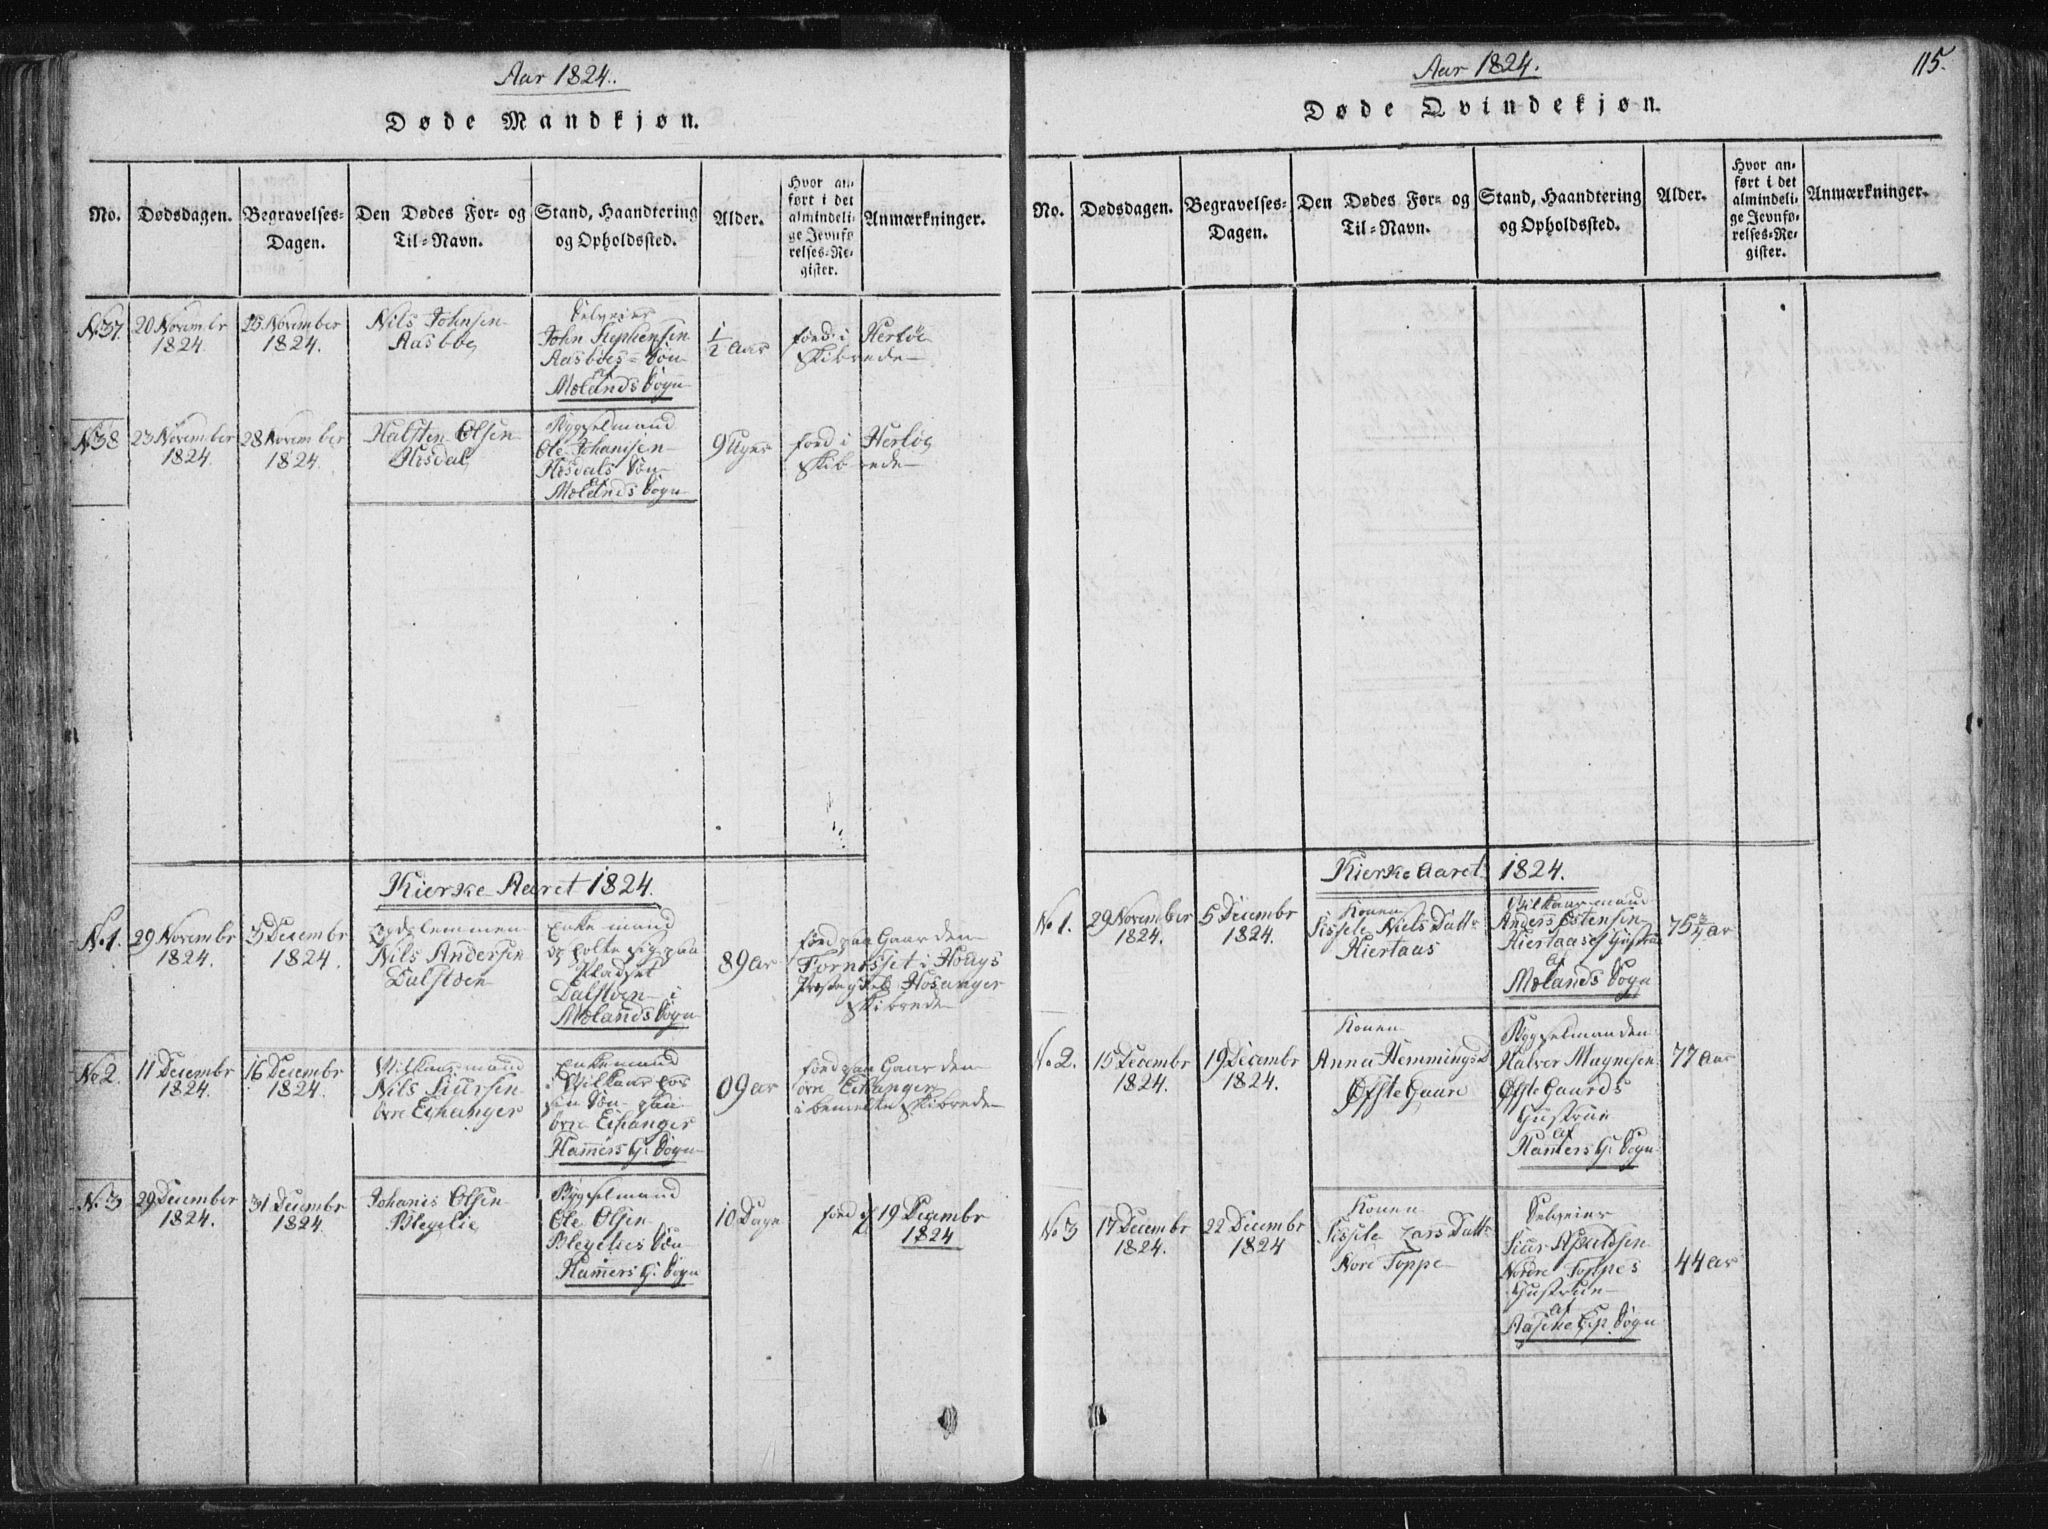 Aar 1824.
Døde Mandkjøn.
No.
Dødsdagen.
Begravelses-
Dagen.
Den Dødes For- og
Til-Navn.
Stand, Haandtering
og Opholdssted.
Alder.
Hvor an-
ført i det
almindeli-
ge Jevnfø-
relses-Re-
gister.
Anmærkninger.
No 37
20 Novembr
1824.
25 November
1824.
Nils Johnsen
Aasbøe
Selveier
John Stephensen
Aasbøes Søn
af
Mølands Sogn
1/2 Aar
fød i Herløe
Skibrede
No 38
23 November
1824.
28 November
1824.
Halsten Olsen
Hisdal
Bygselmand
Ole Johansen
Hisdals Søn
af
Mølands Sogn
9 Uger
fød i Herløe
Skibrede
Kierke Aaret 1824.
No 1.
29 Novembr
1824.
5 Decembr
1824.
Nils Andersen
Dalstøen
Enkemand
og holte sig paa
Pladset
Dalstøen i
Mølands Sogn
89 Ar
fød paa Gaarden
Fornesset i Houys
Hosanger
Skibrede
No 2.
11 Decembr
1824.
16 Decembr
1824.
Vilkaarmand
Nils Siursen
øvre Eichanger
Enkemand
i Vilkaar hos
sin Søn paa
øvre Eichanger
Hamers G: Sogn
fød paa Gaarden
øvre Eichanger
i bemelte Skibrede
No 3
29 December
1824.
31 Decembr
1824.
Johanes Olsen
Blegelie
Bygselmand
Ole Olsen
Blegelies Søn
Hamers G: Sogn
10 Dage
fød d 19 Decembr
1824
Aar 1824.
115.
Døde Qvindekjøn.
No.
Dødsdagen.
Begravelses-
Dagen.
Den Dødes For- og
Til-Navn.
Stand, Haandtering
og Opholdssted.
Alder.
Hvor an-
ført i det
almindeli-
ge Jevnfø-
relses-Re-
gister.
Anmærkninger.
Kierke Aaret 1824.
No 1.
29 November
1824.
5 Decembr
1824.
Konen
Sissele Niels Datt
Hiertaas
Vilkaarmand
Anders Ostensen
Hiertaases Hustrue
af
Mølands Sogn
75 3/4 Ar
No 2.
15 Decembr
1824.
19 Decembr
1824.
Konen
Anna Hemmings D
Øfste Gaare
Bygselmanden
Halver Magnesen
Øfste Gaards
Hustrue
af
Hamers G: Sogn
77 Aar
No 3
17 Decembr
1824.
22 Decembr
1824
Konen
Sissele Lars Datt
Nore Toppe
Selveier
Siur
Nordre Toppes
Hustrue
af
Sogn
44 Ar